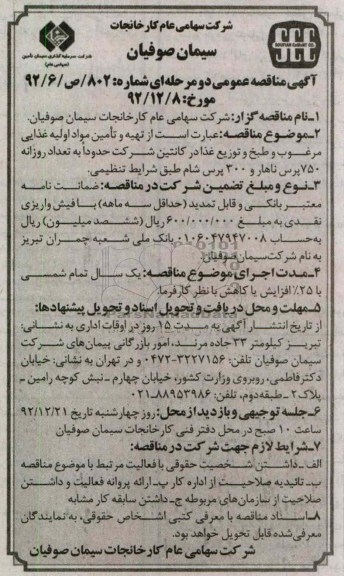 شرکت سهامی عام کارخانجات
سیمان صوفیان
SUFIAN CEMENT CO.
شرکت سرمایه گذاری سیمان تأمین
(سهامی عام)
آگهی مناقصه عمومی دو مرحله‌ای شماره: ۸۰۲/ص/۹۲/۶
مورخ: ۹۲/۱۲/۸
۱-نام مناقصه گزار: شرکت سهامی عام کارخانجات سیمان صوفیان.
۲-موضوع مناقصه: عبارت است از تهیه و تأمین مواد اولیه غذایی
مرغوب و طبخ و توزیع غذا در کانتین شرکت حدوداً به تعداد روزانه
۷۵۰ پرس ناهار و ۳۰۰ پرس شام طبق شرایط تنظیمی.
۳-نوع و مبلغ تضمین شرکت در مناقصه: ضمانت نامه
معتبر بانکی و قابل تمدید (حداقل سه ماهه) یا فیش واریزی
نقدی به مبلغ ۶۰۰/۰۰۰/۰۰۰ ریال (ششصد میلیون) ریال
به حساب ۰۱۰۶۰۴۷۹۴۷۰۰۸ بانک ملی شعبه چمران تبریز
به نام شرکت سیمان صوفیان
۴-مدت اجرای موضوع مناقصه: یک سال تمام شمسی
با ۲۵٪ افزایش یا کاهش با نظر کارفرما.
۵-مهلت و محل دریافت و تحویل اسناد و تحویل پیشنهادها:
از تاریخ انتشار آگهی به مدت ۱۵ روز در اوقات اداری به نشانی:
تبریز کیلومتر ۳۳ جاده مرند، امور بازرگانی پیمان‌های شرکت
سیمان صوفیان تلفن: ۳۲۲۷۱۵۶-۰۴۷۲ و در تهران به نشانی: خیابان
دکتر فاطمی، روبروی وزارت کشور، خیابان چهارم ـ نبش کوچه رامین ـ
پلاک ۲ ـ طبقه دوم، تلفن: ۸۸۹۵۳۹۸۶-۰۲۱
۶-جلسه توجیهی و بازدید از محل: روز چهارشنبه تاریخ ۹۲/۱۲/۲۱
ساعت ۱۰ صبح در محل دفتر فنی کارخانجات سیمان صوفیان
۷-شرایط لازم جهت شرکت در مناقصه:
الف ـ داشتن شخصیت حقوقی با فعالیت مرتبط با موضوع مناقصه
ب ـ تائیدیه صلاحیت از اداره کار پ ـ ارائه پروانه فعالیت و داشتن
صلاحیت از سازمان‌های مربوطه ج ـ داشتن سابقه کار مشابه
۸-اسناد مناقصه با معرفی کتبی اشخاص حقوقی، به نمایندگان
معرفی شده قابل تحویل خواهد بود.
شرکت سهامی عام کارخانجات سیمان صوفیان